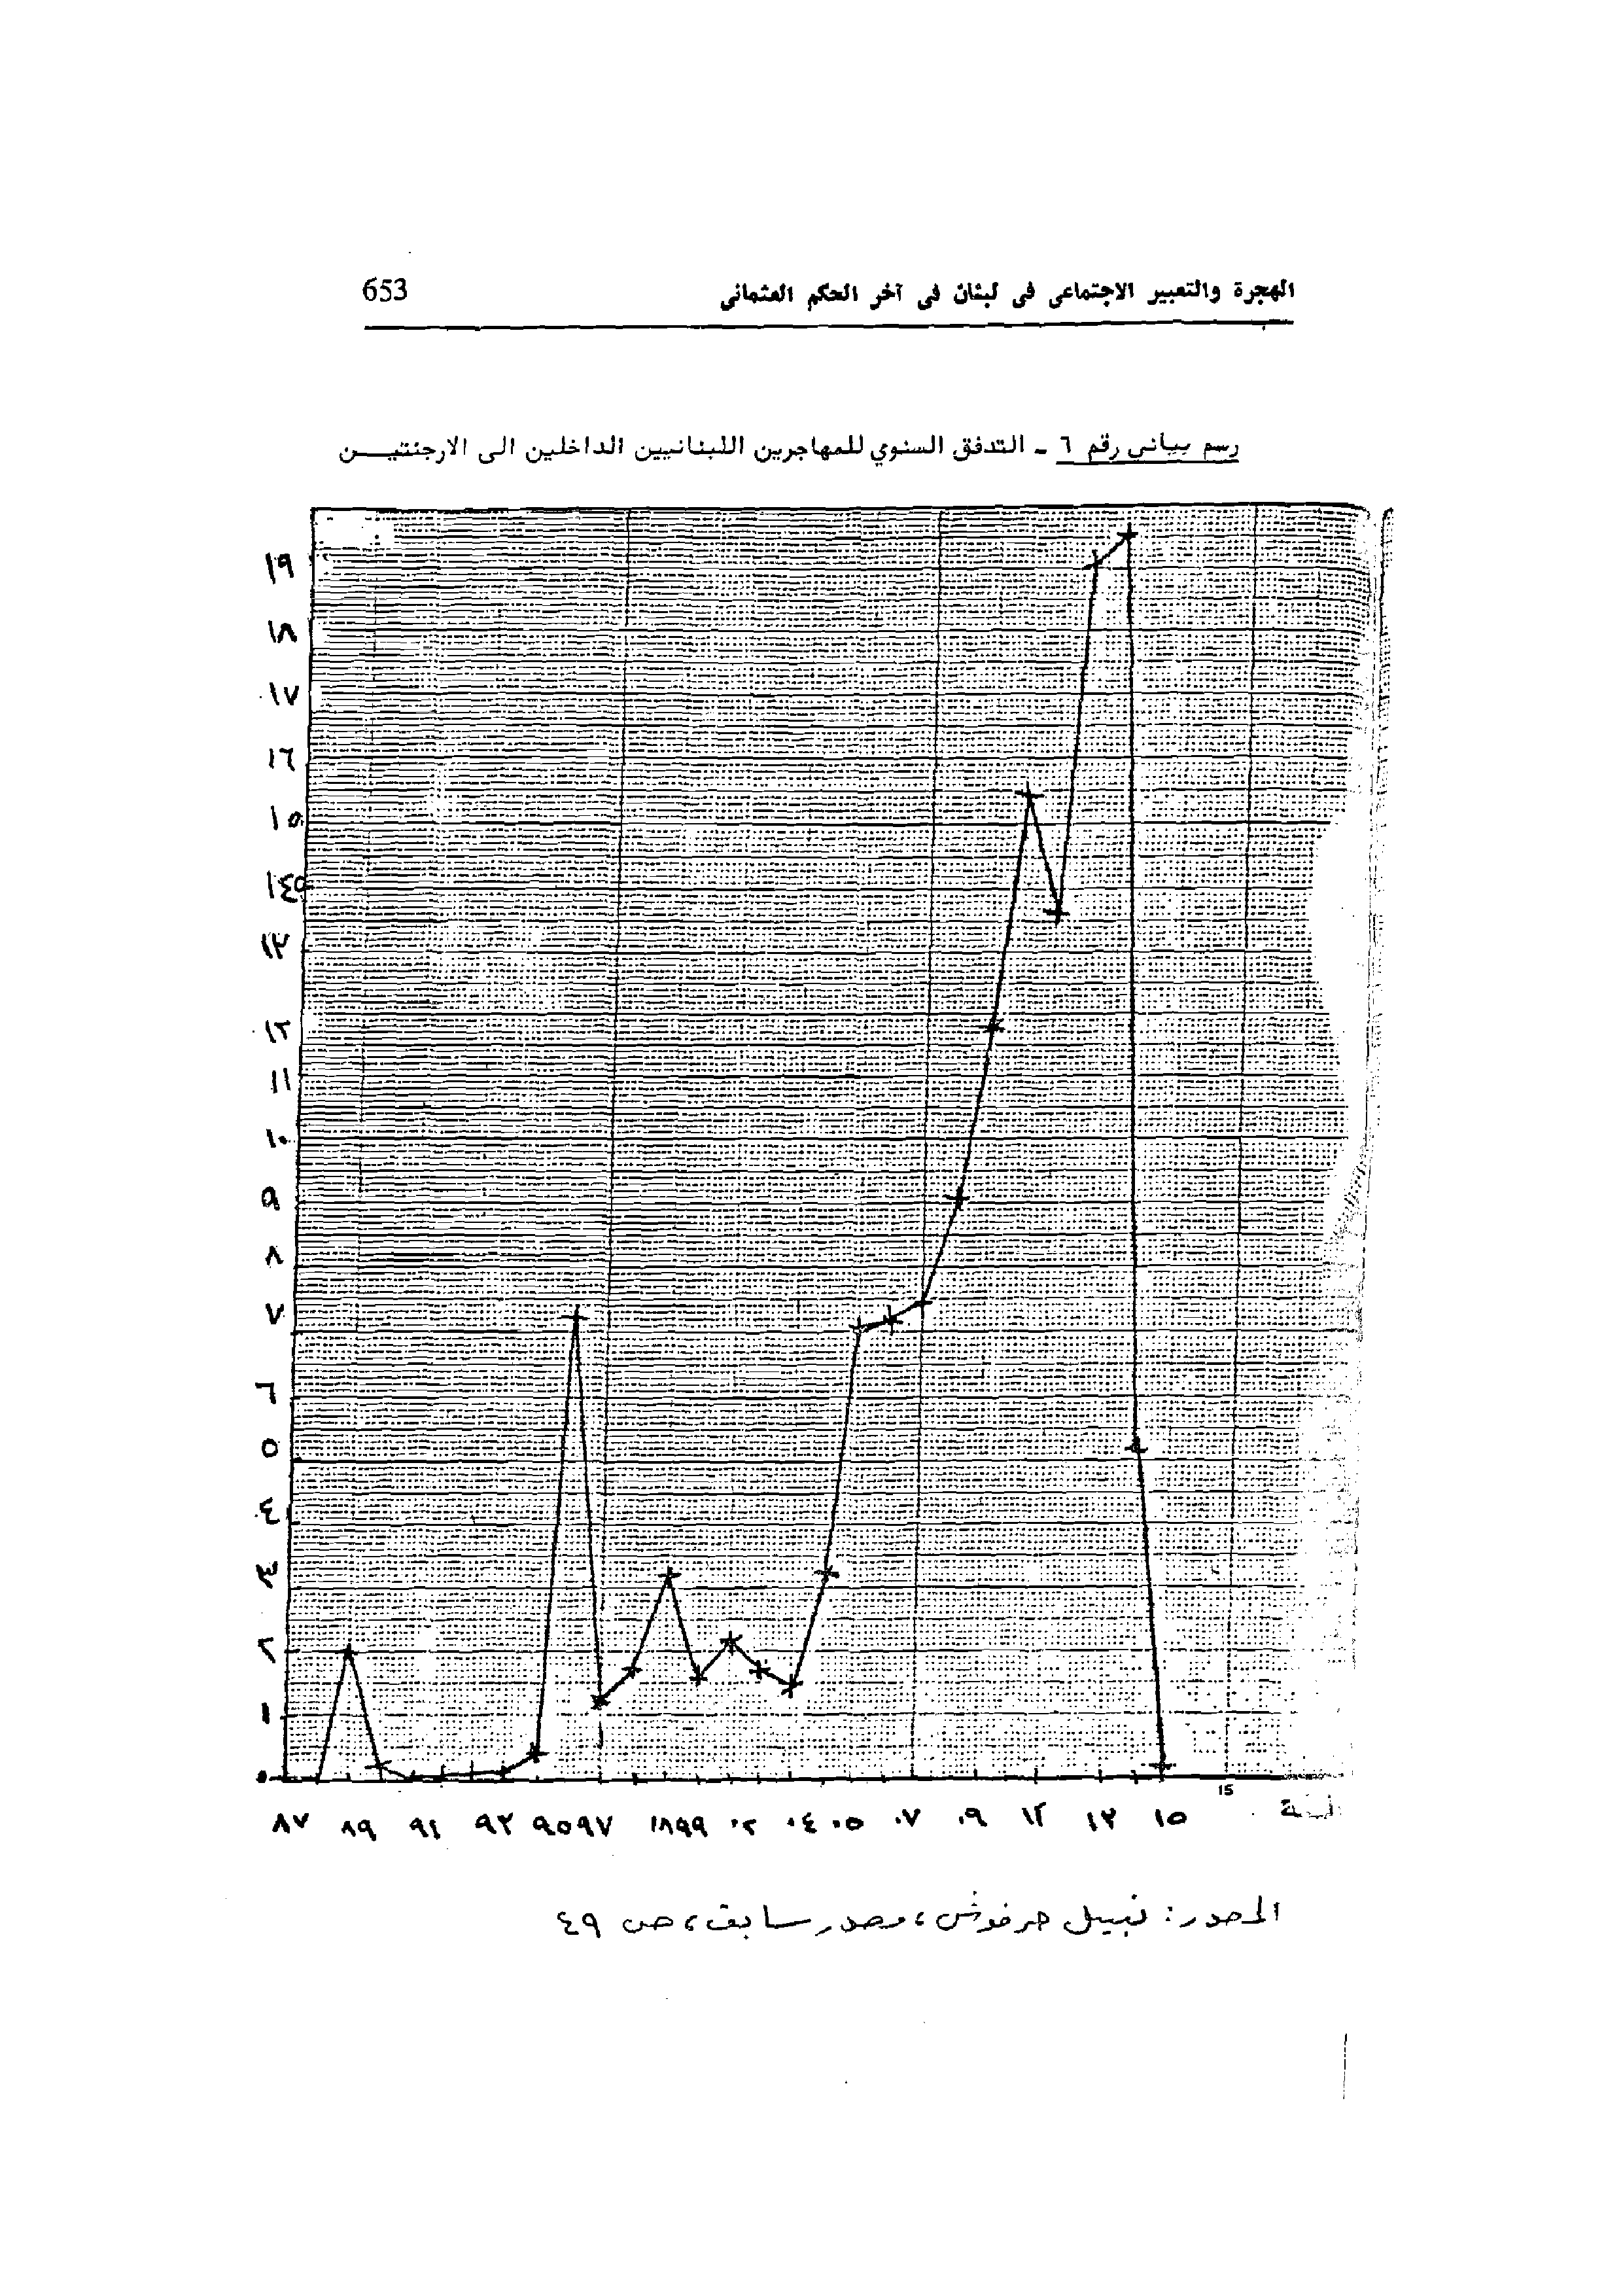 الهجرة والتعبير الاجتماعى فى لبنان فى آخر الحكم العثمانى 653
رسم بيانى رقم ٦ - التدفق السنوي للمهاجرين اللبنانيين الداخلين الى الارجنتيـــن
١٩
١٨
١٧
١٦
١٥
١٤
١٣
١٢
١١
١٠
٩
٨
٧
٦
٥
٤
٣
٢
١
٠
15
٨٧ ٨٩ ٩١ ٩٣ ٩٥ ٩٧ ١٨٩٩ ٠٢ ٠٤ ٠٥ ٠٧ ٠٩ ١٢ ١٣ ١٥
المصدر: نبيل حرفوش، مصدر سابق، ص ٤٩